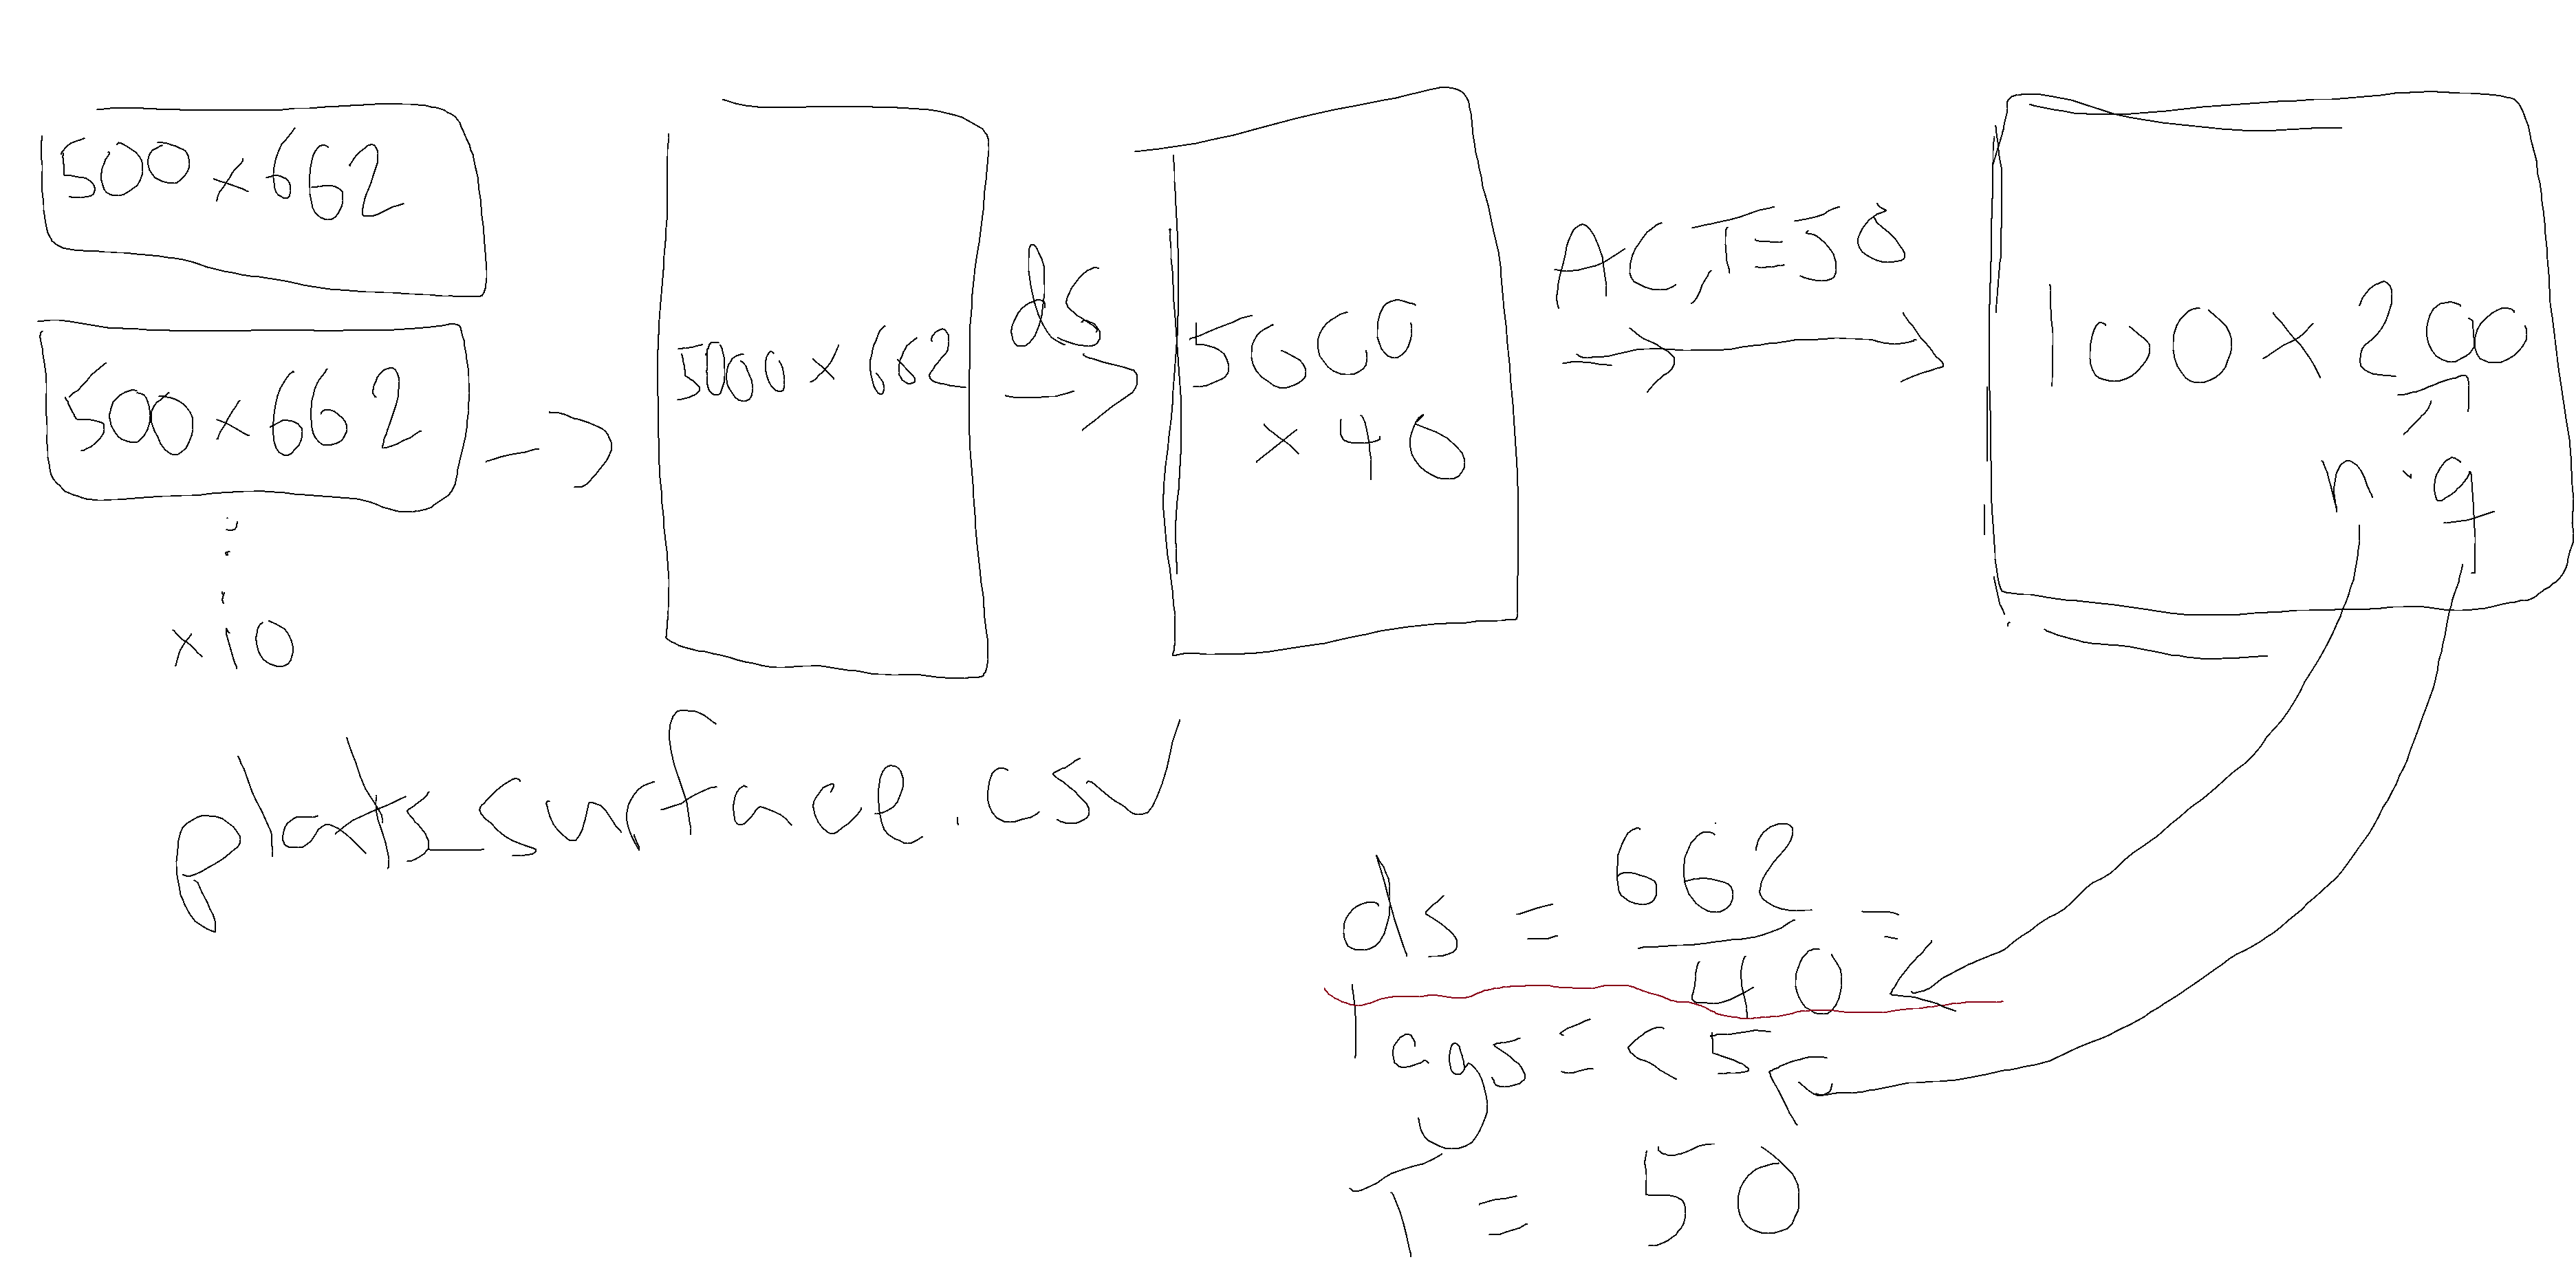 500 x 662
500 x 662
x 10
5000 x 662
ds
5000
x 40
AC, T=50
100 x 200
n · q
plats_surface.csv
ds = 662/40 =
lags = < 5
T = 50